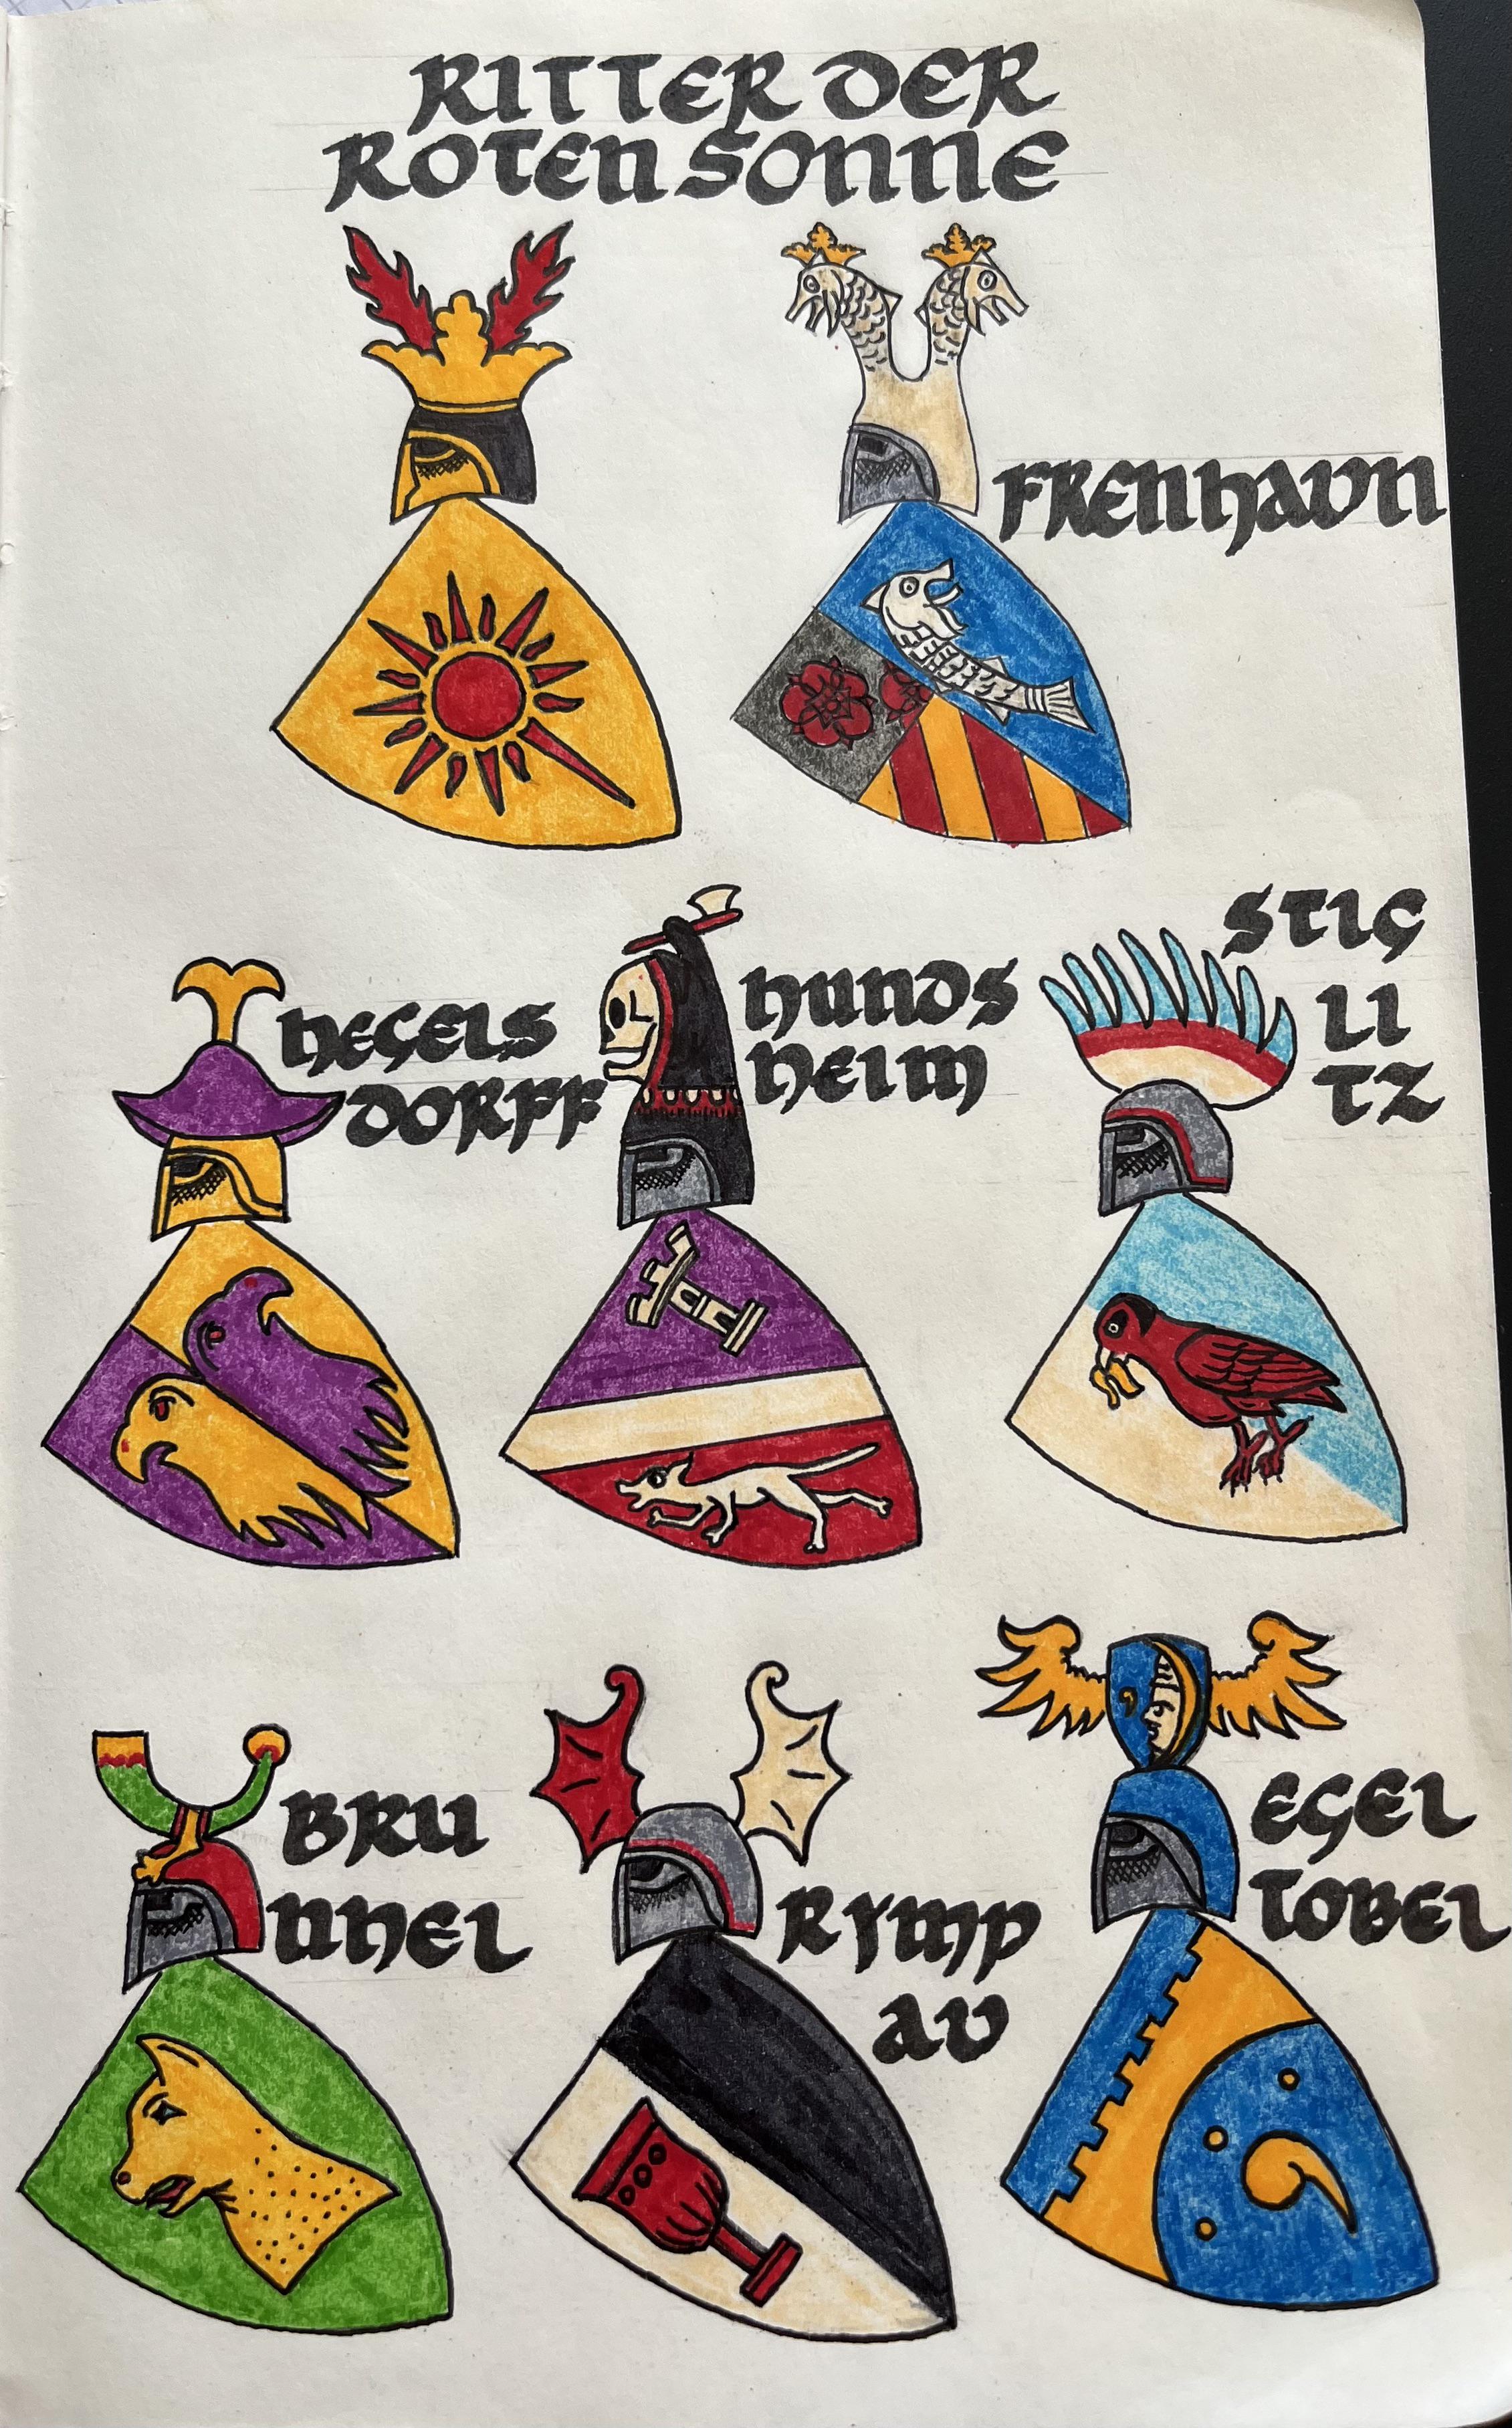 RITTER DER
ROTEN SONNE
FRENHAVN
HEGELS
DORFF
HUNDS
HEIM
STIG
LI
TZ
BRU
NHEL
RYMP
AV
EGEL
TOBEL